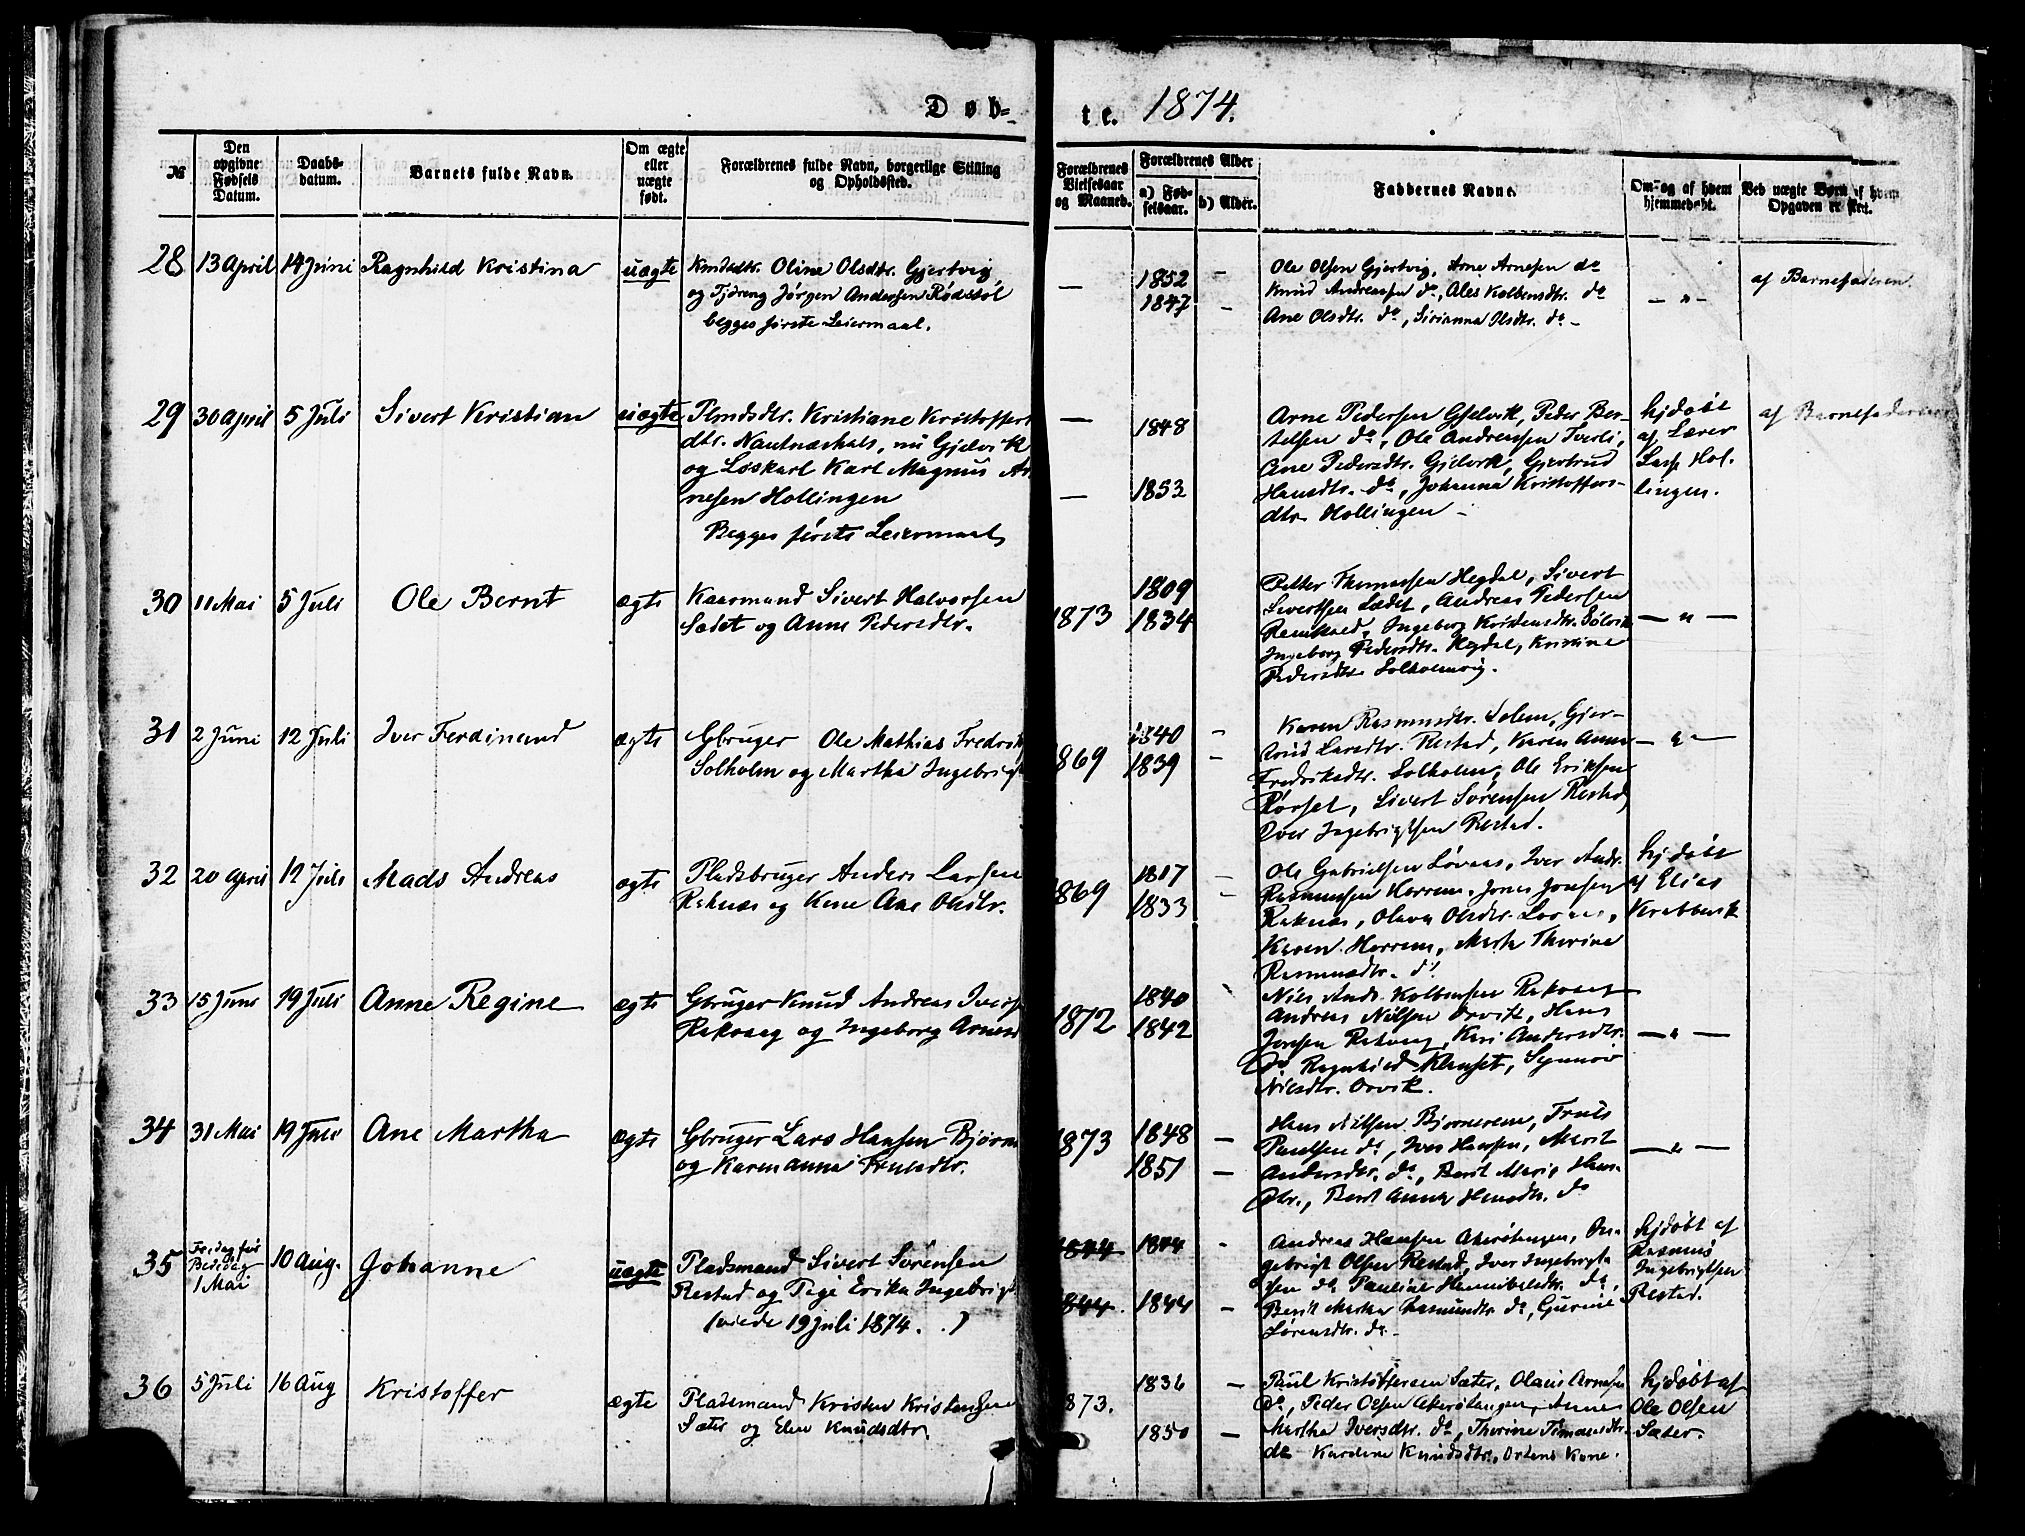 Døb-
te. 1874.
№
Den opgivne Fødsels Datum.
Daabs-datum.
Barnets fulde Navn.
Om ægte eller uægte født.
Forældrenes fulde Navn, borgerlige Stilling og Opholdssted.
Forældrenes Vielsesaar og Maaned.
Forældrenes Alder
a) Fødselsaar.
b) Alder.
Faddernes Navne.
Om og af hvem hjemmedøbt.
Ved uægte Børn af hvem Opgaven er skeet.
28 13 April 14 Juni Ragnhild Kristina uægte
Oline Olsdtr. Gjertvig,
og Tjdreng Jørgen Andersen Rødstøl
begges første Leiermaal.
— 1852 —
1847 —
Ole Olsen Gjertvig, Arne Arnesen do
Knud Andreassen do, Ales Kolbensdtr. do
Ane Olsdtr. do, Sirianna Olsdtr. do —
— " —
af Barnefaderen
29 30 April 5 Juli Sivert Kristian uægte
Kristiane Kristoffers
dtr. Nautneskals, nu Gjelvik
og Løskarl Karl Magnus Ar
nesen Hollingen
Begges første Leiermaal
— 1848
— 1853
Arne Pedersen Gjelvik, Peder Ber-
telsen do, Ole Andreassen Tverli,
Ane Pedersdtr. Gjelvik, Gjertrud
Hansdtr. do, Johanna Kristoffers-
dtr. Hollingen —
hjdøbt
af Lærer
Lars Hol-
lingen.
af Barnefaderen
30 11 Mai 5 Juli Ole Bernt ægte
Kaarmand Sivert Halvorsen
Sædet og Anne Pedersdtr.
1873 1809
1834
Petter Thomassen Hegdal, Sivert
Sivertsen Sædet, Andreas Pedersen
Ingeborg Kristensdtr.
Ingeborg Pedersdtr. Hegdal, Kristine
Pedersdtr. Solholmvig.
— " —
31 2 Juni 12 Juli Iver Ferdinand ægte
Gbruger Ole Mathias Fredriks
Solholm og Martha Ingebrigt
869 1840 —
1839 —
Karen Rasmusdtr. Solem, Gjer-
trud Larsdtr. Restad, Karen Anna
Fredriksdtr. Solholm, Ole Eriksen
Rørset, Sivert Sørensen Restad
Iver Ingebrigtsen Restad.
— " —
32 20 April 12 Juli Mads Andreas ægte
Pladsbruger Anders Larsen
Raknæs og Kone Ane Olsdtr.
869 1817 —
1833 "
Ole Gabrielsen Løvaas, Iver Andr.
Rasmussen Horrem, Jonas Jonsen
Raknæs, Olava Olsdtr. Lovaas,
Karen Horrem, Marta Thorine
Rasmusdtr. do
hjdøbt
af Elias
Krabbevik
33 15 Juni 19 Juli Anne Regine ægte
Gbruger Knud Andreas Ivers
Rekvaag og Ingeborg Arnesd
1872 1840
1842
Nils Andr. Kolbensen Rekvaag
Andreas Nilsen Orvik, Hans
Jonsen Rekvaag, Kari Andersdtr.
do Ragnhild Klauset, Synnøv
Nilsdtr. Orvik.
— " —
34 31 Mai 19 Juli Ane Martha ægte
Gbruger Lars Hansen Bjørne
og Karenanna Trulsdtr.
1873 1848 —
1851 —
Hans Nilsen Bjørnerem, Truls
Paulsen do, Iver Hansen, Marit
Andersdtr. do, Berit Marie Hans-
dtr., Berit Anna Hansdtr. do
— " —
35 Fredag før
Bededag
1 Mai 10 Aug. Johanne uægte
Pladsmand Sivert Sørensen
Restad og Pige Erika Ingebrigt
(viede 19 Juli 1874. .)
1844 1844 -
1844. 1844 —
Andreas Hansen Akerøtangen, In-
gebrigt Olsen Restad, Iver Ingebrigt
sen do Pauline Hannibalsdtr. do,
Berit Marta Rasmusdtr. do, Gurine
Sørensdtr. do —
hjdøbt af
Rasmus
Ingebrigtsen
Restad.
36 5 Juli 16 Aug Kristoffer ægte
Pladsmand Kristen Kristensen
Sæter og Elen Knudsdtr.
873. 1836 —
1850 —
Paul Kristoffersen Sæter, Olaus Arnesen
do, Peder Olsen Akerøtangen, Anne
Martha Iversdtr. do, Thorine Timansdtr.
do Karoline Knudsdtr., Ortens Kone.
hjdøbt af
Ole Olsen
Sæter.